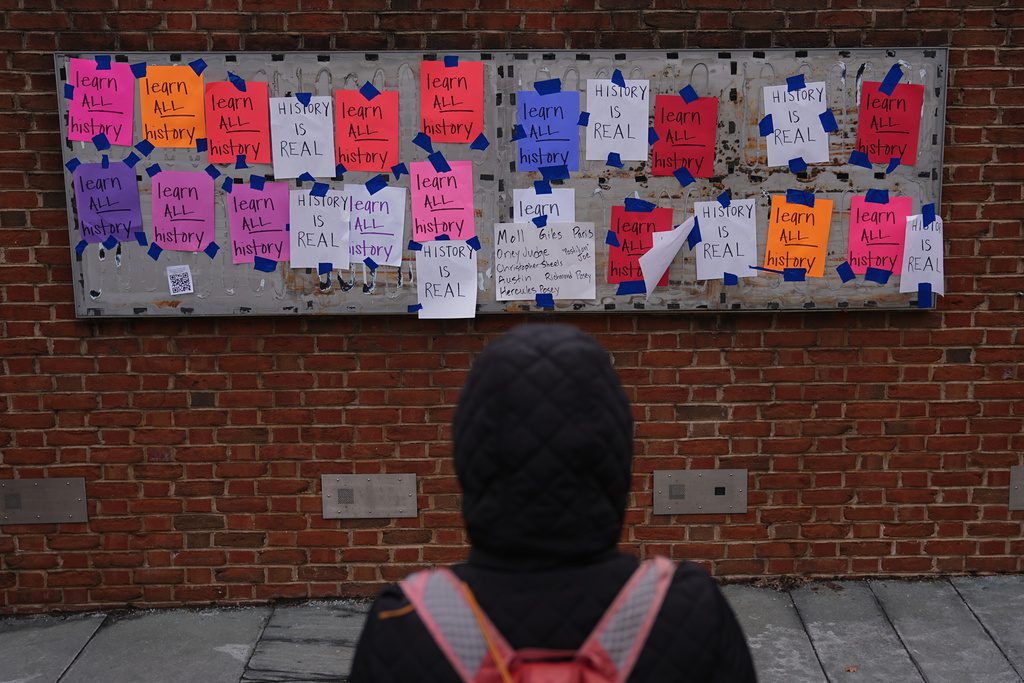 learn
ALL
history
learn
ALL
history
learn
ALL
history
HISTORY
IS
REAL
learn
ALL
history
learn
ALL
history
learn
ALL
history
HISTORY
IS
REAL
learn
ALL
history
HISTORY
IS
REAL
learn
ALL
history
learn
ALL
history
learn
ALL
history
learn
ALL
history
HISTORY
IS
REAL
learn
ALL
history
learn
ALL
history
HISTORY
IS
REAL
learn
Moll Giles Paris
Oney Judge
Christopher Sheels Joe
Richmond Posey
Hercules Posey
learn
ALL
history
HISTORY
IS
REAL
learn
ALL
history
learn
ALL
history
HISTORY
IS
REAL